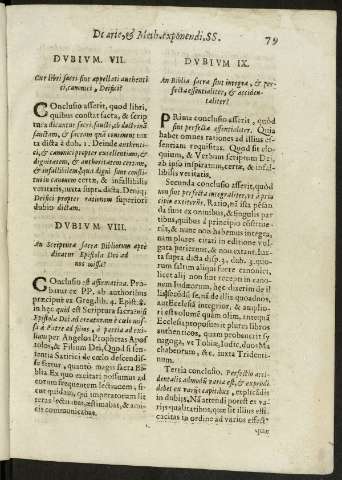 De arte, & Meth. exponendi. SS. 79
DVBIVM. VII.
Cur libri sacri sint appellati authenti
ci, canonici, Deifici?
Conclusio asserit, quòd libri,
quibus constat sacra, & scrip
tura dicantur sacri, sancti, ab doctrina
sanctam, & sacram quã continent iux
ta dicta à dub. 1. Deinde authenti-
ci, & canonici propter excellentiam, &
dignitatem, & authoritatem certam,
& infallibilem quia digni sunt consti-
tui in canone certæ, & infallibilis
veritatis, iuxta supra dicta. Deniq;
Deifici propter rationem superiori
dubio dictam.
DVBIVM. VIII.
An Scriptura sacra Bibliorum aptè
dicatur Epistola Dei ad
nos missa?
Conclusio est affirmatiua. Pro-
batur ex PP. ab authoribus
præcipuè ex Greg. lib. 4. Epist.
in hęc quid est Scriptura sacra nisi
Epistola Dei ad creaturam è cælo mis-
sa à Patre ad filios, à patria ad exi-
lium per Angelos Prophetas Apos
tolos, & Filium Dei, Quod si sen-
tentia Satirici de cælo descendis-
se fertur, quanto magis sacra Bi-
blia Ex quo excitari possumus ad
eorum frequentem lectionem, si-
cut quidam, qui imperatorum lit
teras
communicabat.
DVBIVM IX.
An Biblia sacra sint integra, & per-
fecta essentialiter, & acciden-
taliter?
Prima conclusio asserit, quòd
sint perfecta essentialiter. Quia
habet omnes rationes ad illius es-
sentiam requisitas. Quod sit elo-
quium, & Verbum scriptum Dei,
ab ipso inspiratum, certæ, & infal-
libilis veritatis.
Secunda conclusio asserit, quòd
non sint perfecta integraliter, vt à prin
cipio exstiterũt. Ratio, ni ista pesan
da sunt ex omnibus, & singulis par-
tibus, quibus à principio constitue-
rũt, & nunc non habemus integra,
nim plures citati in editione vulga
ta perierunt, & non extant, iux-
ta supra dicta disp. 3. dub. 3. quo-
rum saltem aliqui fuere canonici,
licet alij non sint scripti in canone
Iudæorum, hęc dixerim de il
lis, nã de illis quoadnos,
aut Ecclesiã integrior, & ampli-
ri est modo, quàm olim, antequã
Ecclesia proposuerit plures libros
authenticos, quam proabuerit sy-
nagoga, vt Tobiæ, Iudit, duos Ma
chabæorum, &c. iuxta Tridenti-
num.
Tertia conclusio. Perfectio acci-
dentalis admodũ varia est, & expendi
debet ex varijs capitibus, explicãdis
in dubijs. Nã attendi potest ex va-
rijs qualitatibus, quæ sit illius effi-
cacitas in ordine ad varios effect⁹